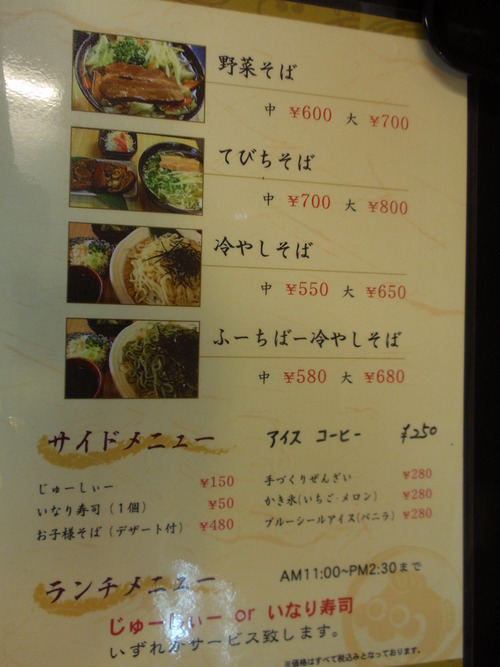 野菜そば
中 ¥600 大 ¥700
てびちそば
中 ¥700 大 ¥800
冷やしそば
中 ¥550 大 ¥650
ふーちばー冷やしそば
中 ¥580 大 ¥680
サイドメニュー
アイス コーヒー ¥250
じゅーしぃー ¥150
いなり寿司(1個) ¥50
お子様そば(デザート付) ¥480
手づくりぜんざい ¥280
かき氷(いちご・メロン) ¥280
ブルーシールアイス(バニラ) ¥280
ランチメニュー
AM11:00~PM2:30まで
じゅーしぃー or いなり寿司
いずれかサービス致します。
※価格はすべて税込みとなっております。